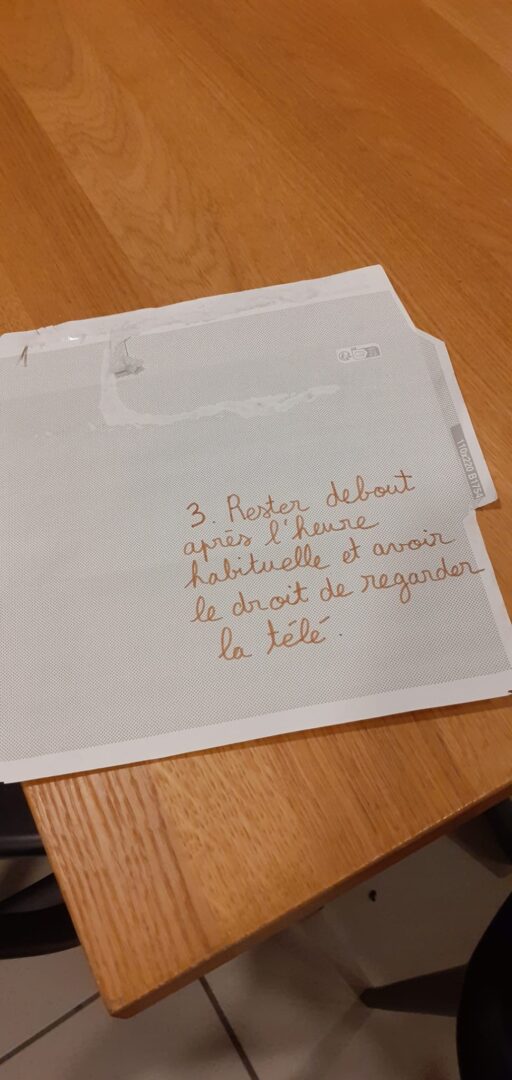 1
110x220 B1754
3. Rester debout
après l'heure
habituelle et avoir
le droit de regarder
la télé.